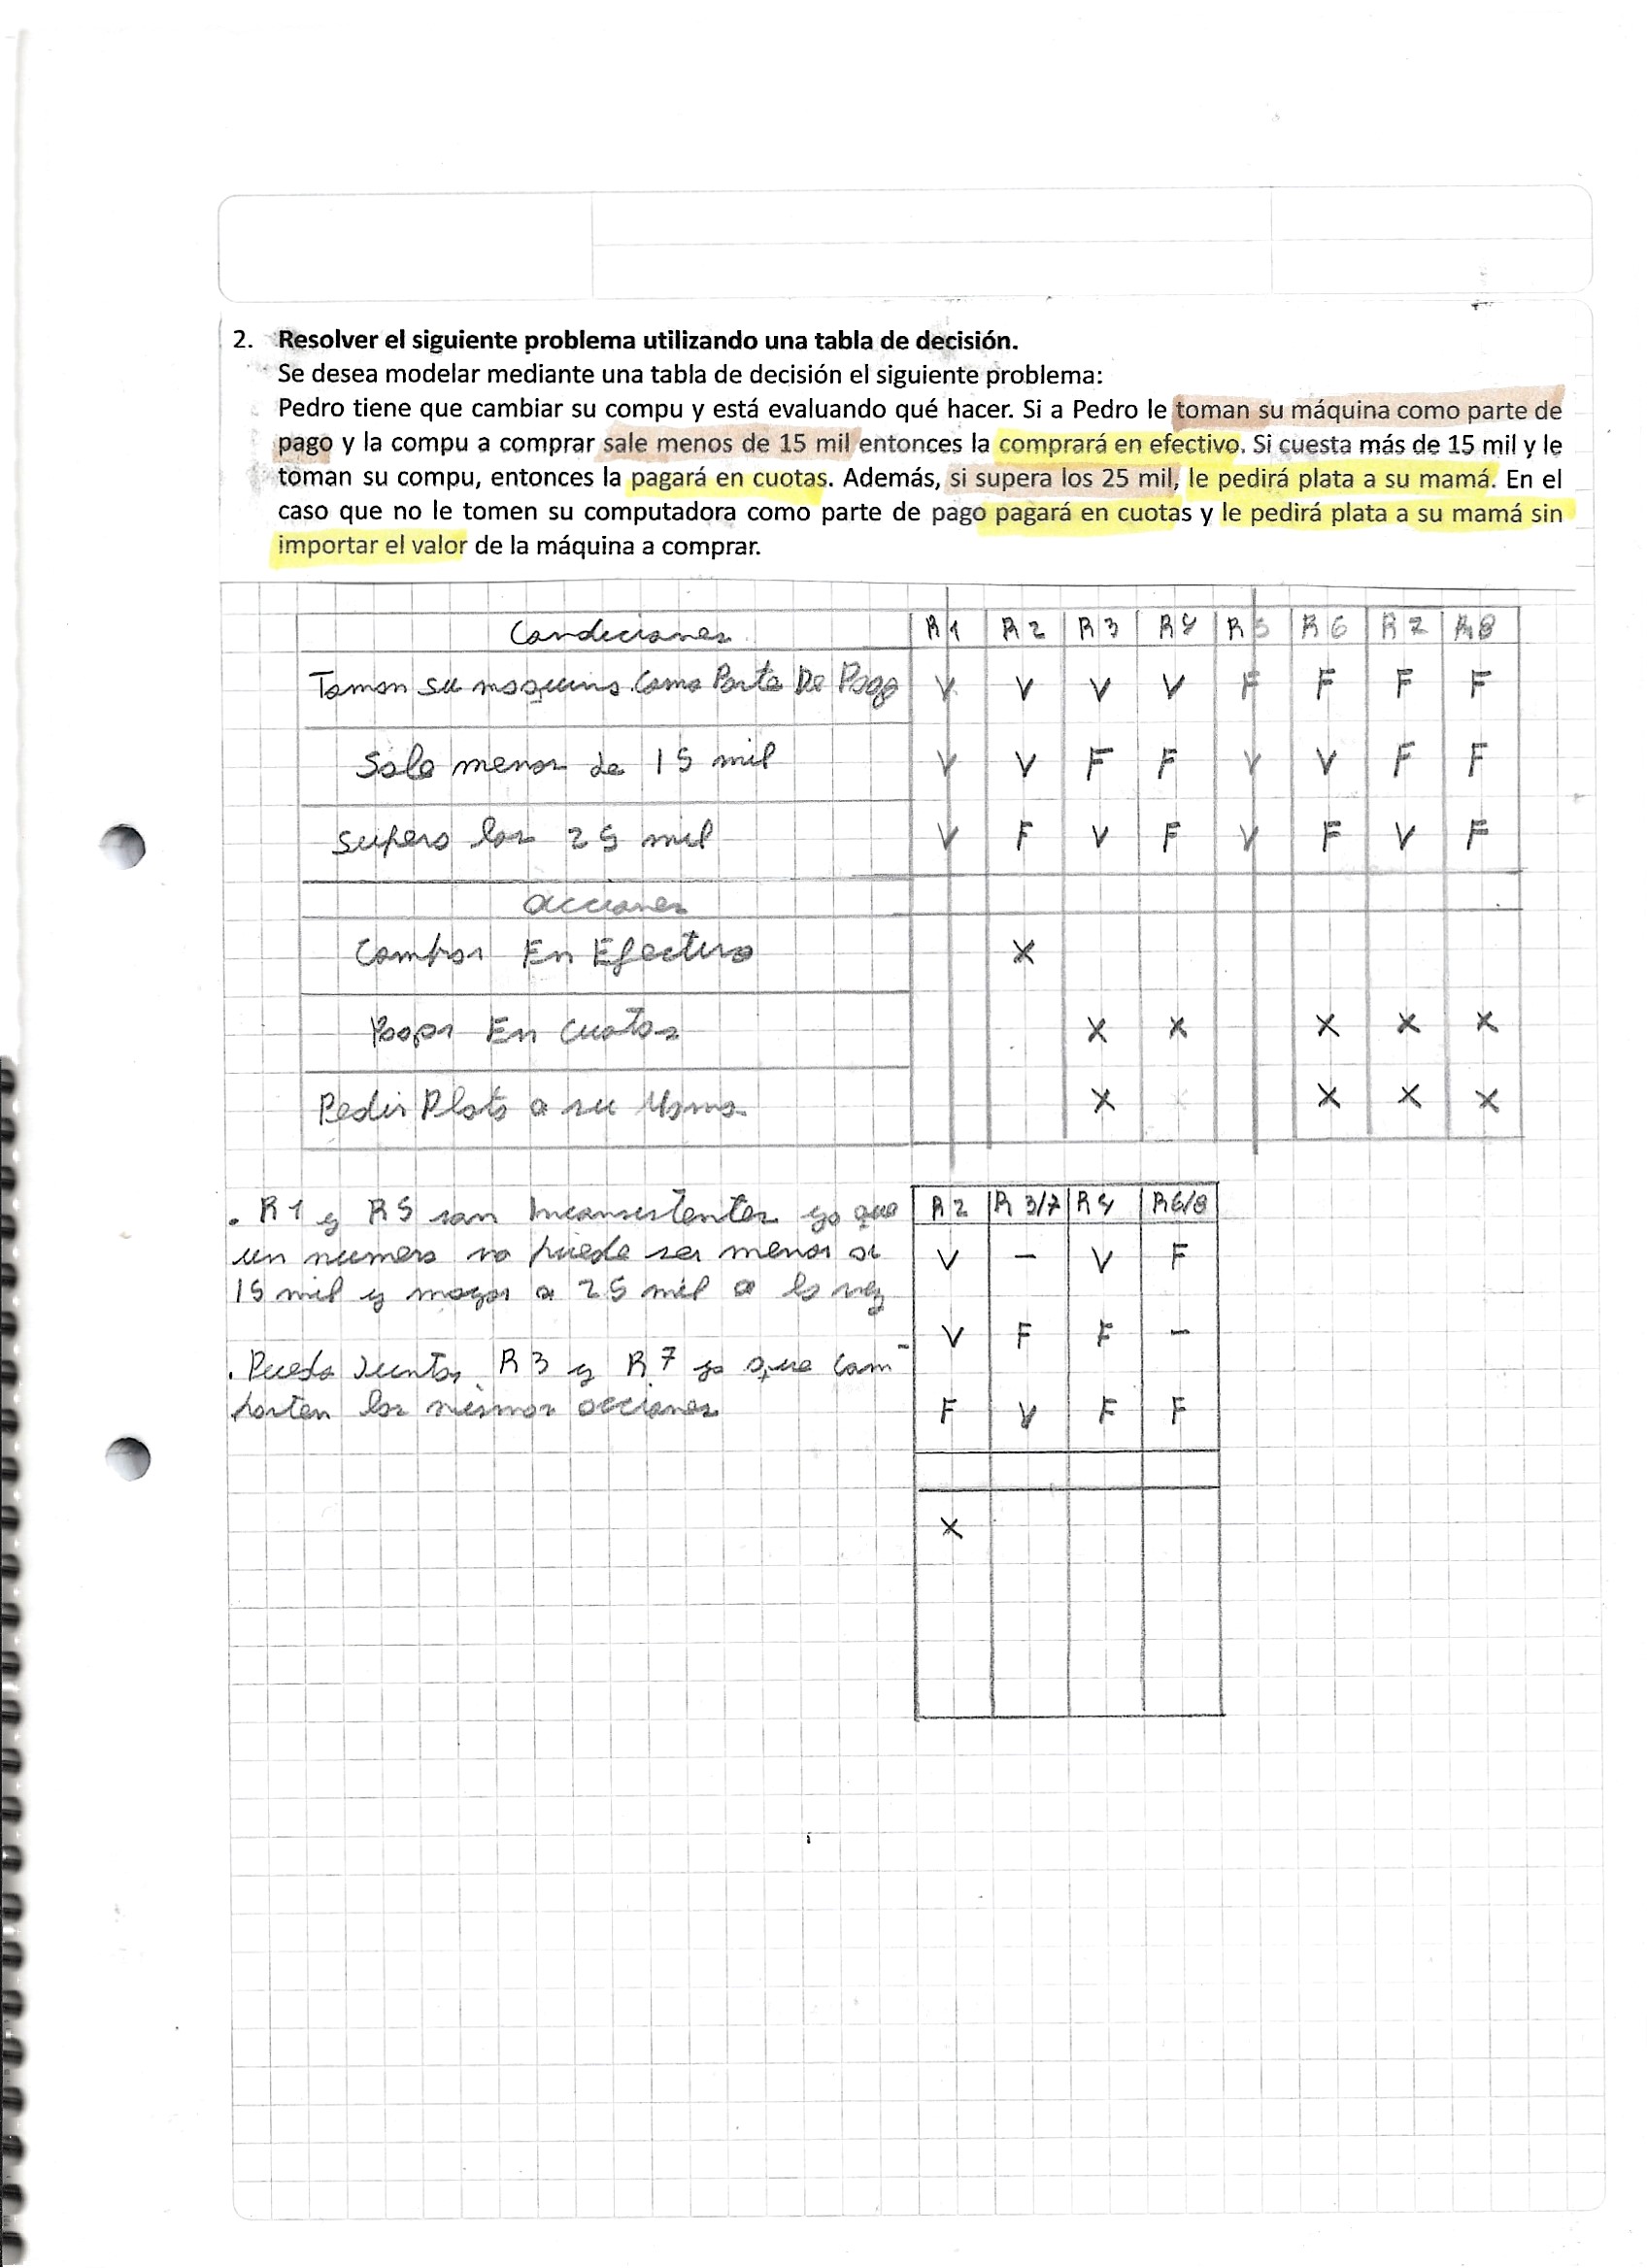 2. Resolver el siguiente problema utilizando una tabla de decisión.
Se desea modelar mediante una tabla de decisión el siguiente problema:
Pedro tiene que cambiar su compu y está evaluando qué hacer. Si a Pedro le toman su máquina como parte de
pago y la compu a comprar sale menos de 15 mil entonces la comprará en efectivo. Si cuesta más de 15 mil y le
toman su compu, entonces la pagará en cuotas. Además, si supera los 25 mil, le pedirá plata a su mamá. En el
caso que no le tomen su computadora como parte de pago pagará en cuotas y le pedirá plata a su mamá sin
importar el valor de la máquina a comprar.
Condiciones R1 R2 R3 R4 R5 R6 R7 R8
Toman su maquina Como Parte De Pago V V V V F F F F
Sale menos de 15 mil V V F F V V F F
Supera los 25 mil V F V F V F V F
acciones
Comprar En Efectivo X
Pagar En Cuotas X X X X X
Pedir Plata a su Mama X X X X
. R1 y R5 son Inconsistentes ya que R2 R3/7 R4 R6/8
un numero no puede ser menor a V – V F
15 mil y mayor a 25 mil a la vez
V F F –
. Puedo Juntar R3 y R7 ya que com-
parten las mismas acciones F V F F
X